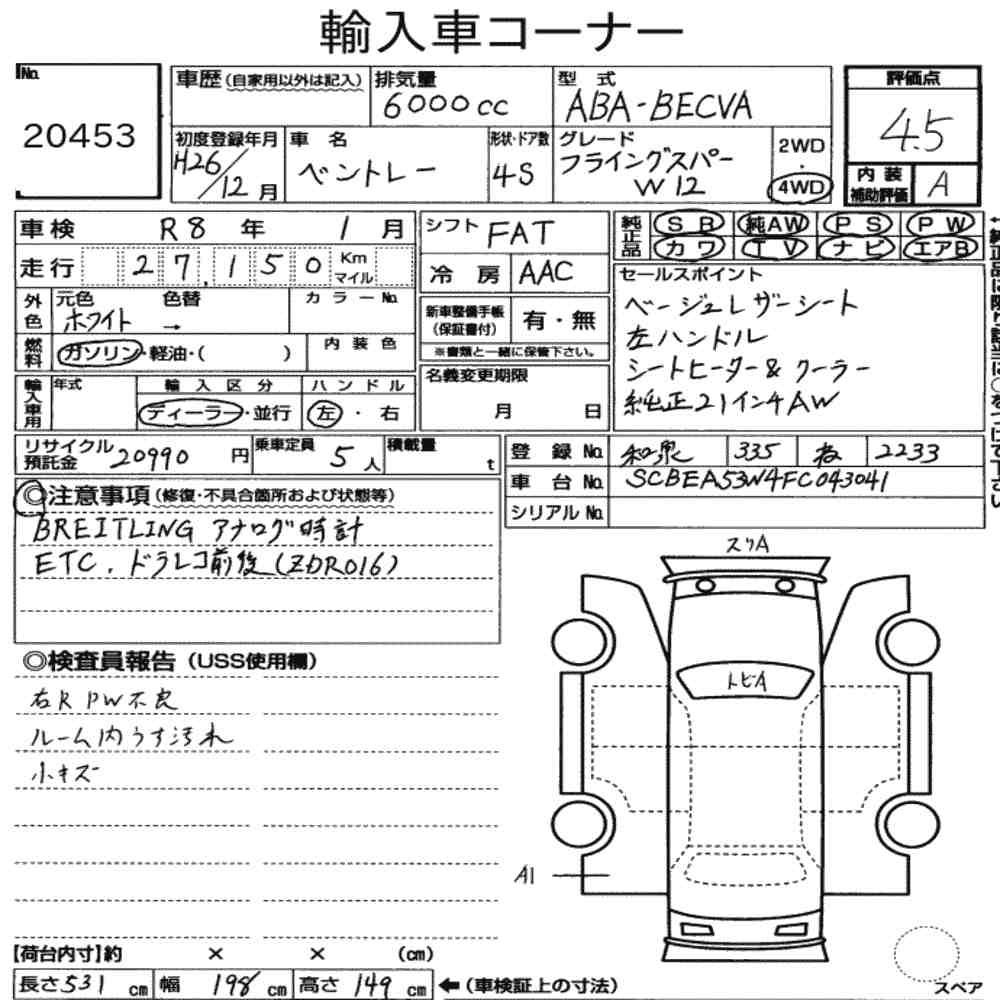 輸入車コーナー
No.
20453
車歴 (自家用以外は記入)
排気量
6000cc
型式
ABA-BECVA
評価点
4.5
初度登録年月
H26/12月
車名
ベントレー
形状・ドア数
4S
グレード
フライングスパー
W12
2WD
・
4WD
内装
補助評価
A
車検 R8年 1月
走行 27,150 Km
マイル
シフト FAT
冷房 AAC
純正品
SR 純AW PS PW
カワ TV ナビ エアB
外色
元色
ホワイト
色替
→
カラーNo.
燃料
ガソリン・軽油・( )
内装色
新車整備手帳
(保証書付)
有・無
※書類と一緒に保管下さい。
輸入車用
年式
輸入区分
ディーラー・並行
ハンドル
左・右
名義変更期限
月 日
セールスポイント
ベージュレザーシート
左ハンドル
シートヒーター&クーラー
純正21インチAW
リサイクル
預託金 20990円
乗車定員 5人
積載量 t
登録No. 和泉 335 2233
車台No. SCBEA53W4FC043041
シリアルNo.
◎注意事項 (修復・不具合箇所および状態等)
BREITLING アナログ時計
ETC. ドラレコ前後(ZDR016)
◎検査員報告 (USS使用欄)
右R PW不良
ルーム内うす汚れ
小キズ
スリA
トビA
A1
【荷台内寸】約 × × (cm)
長さ531cm 幅198cm 高さ149cm
←(車検証上の寸法)
スペア